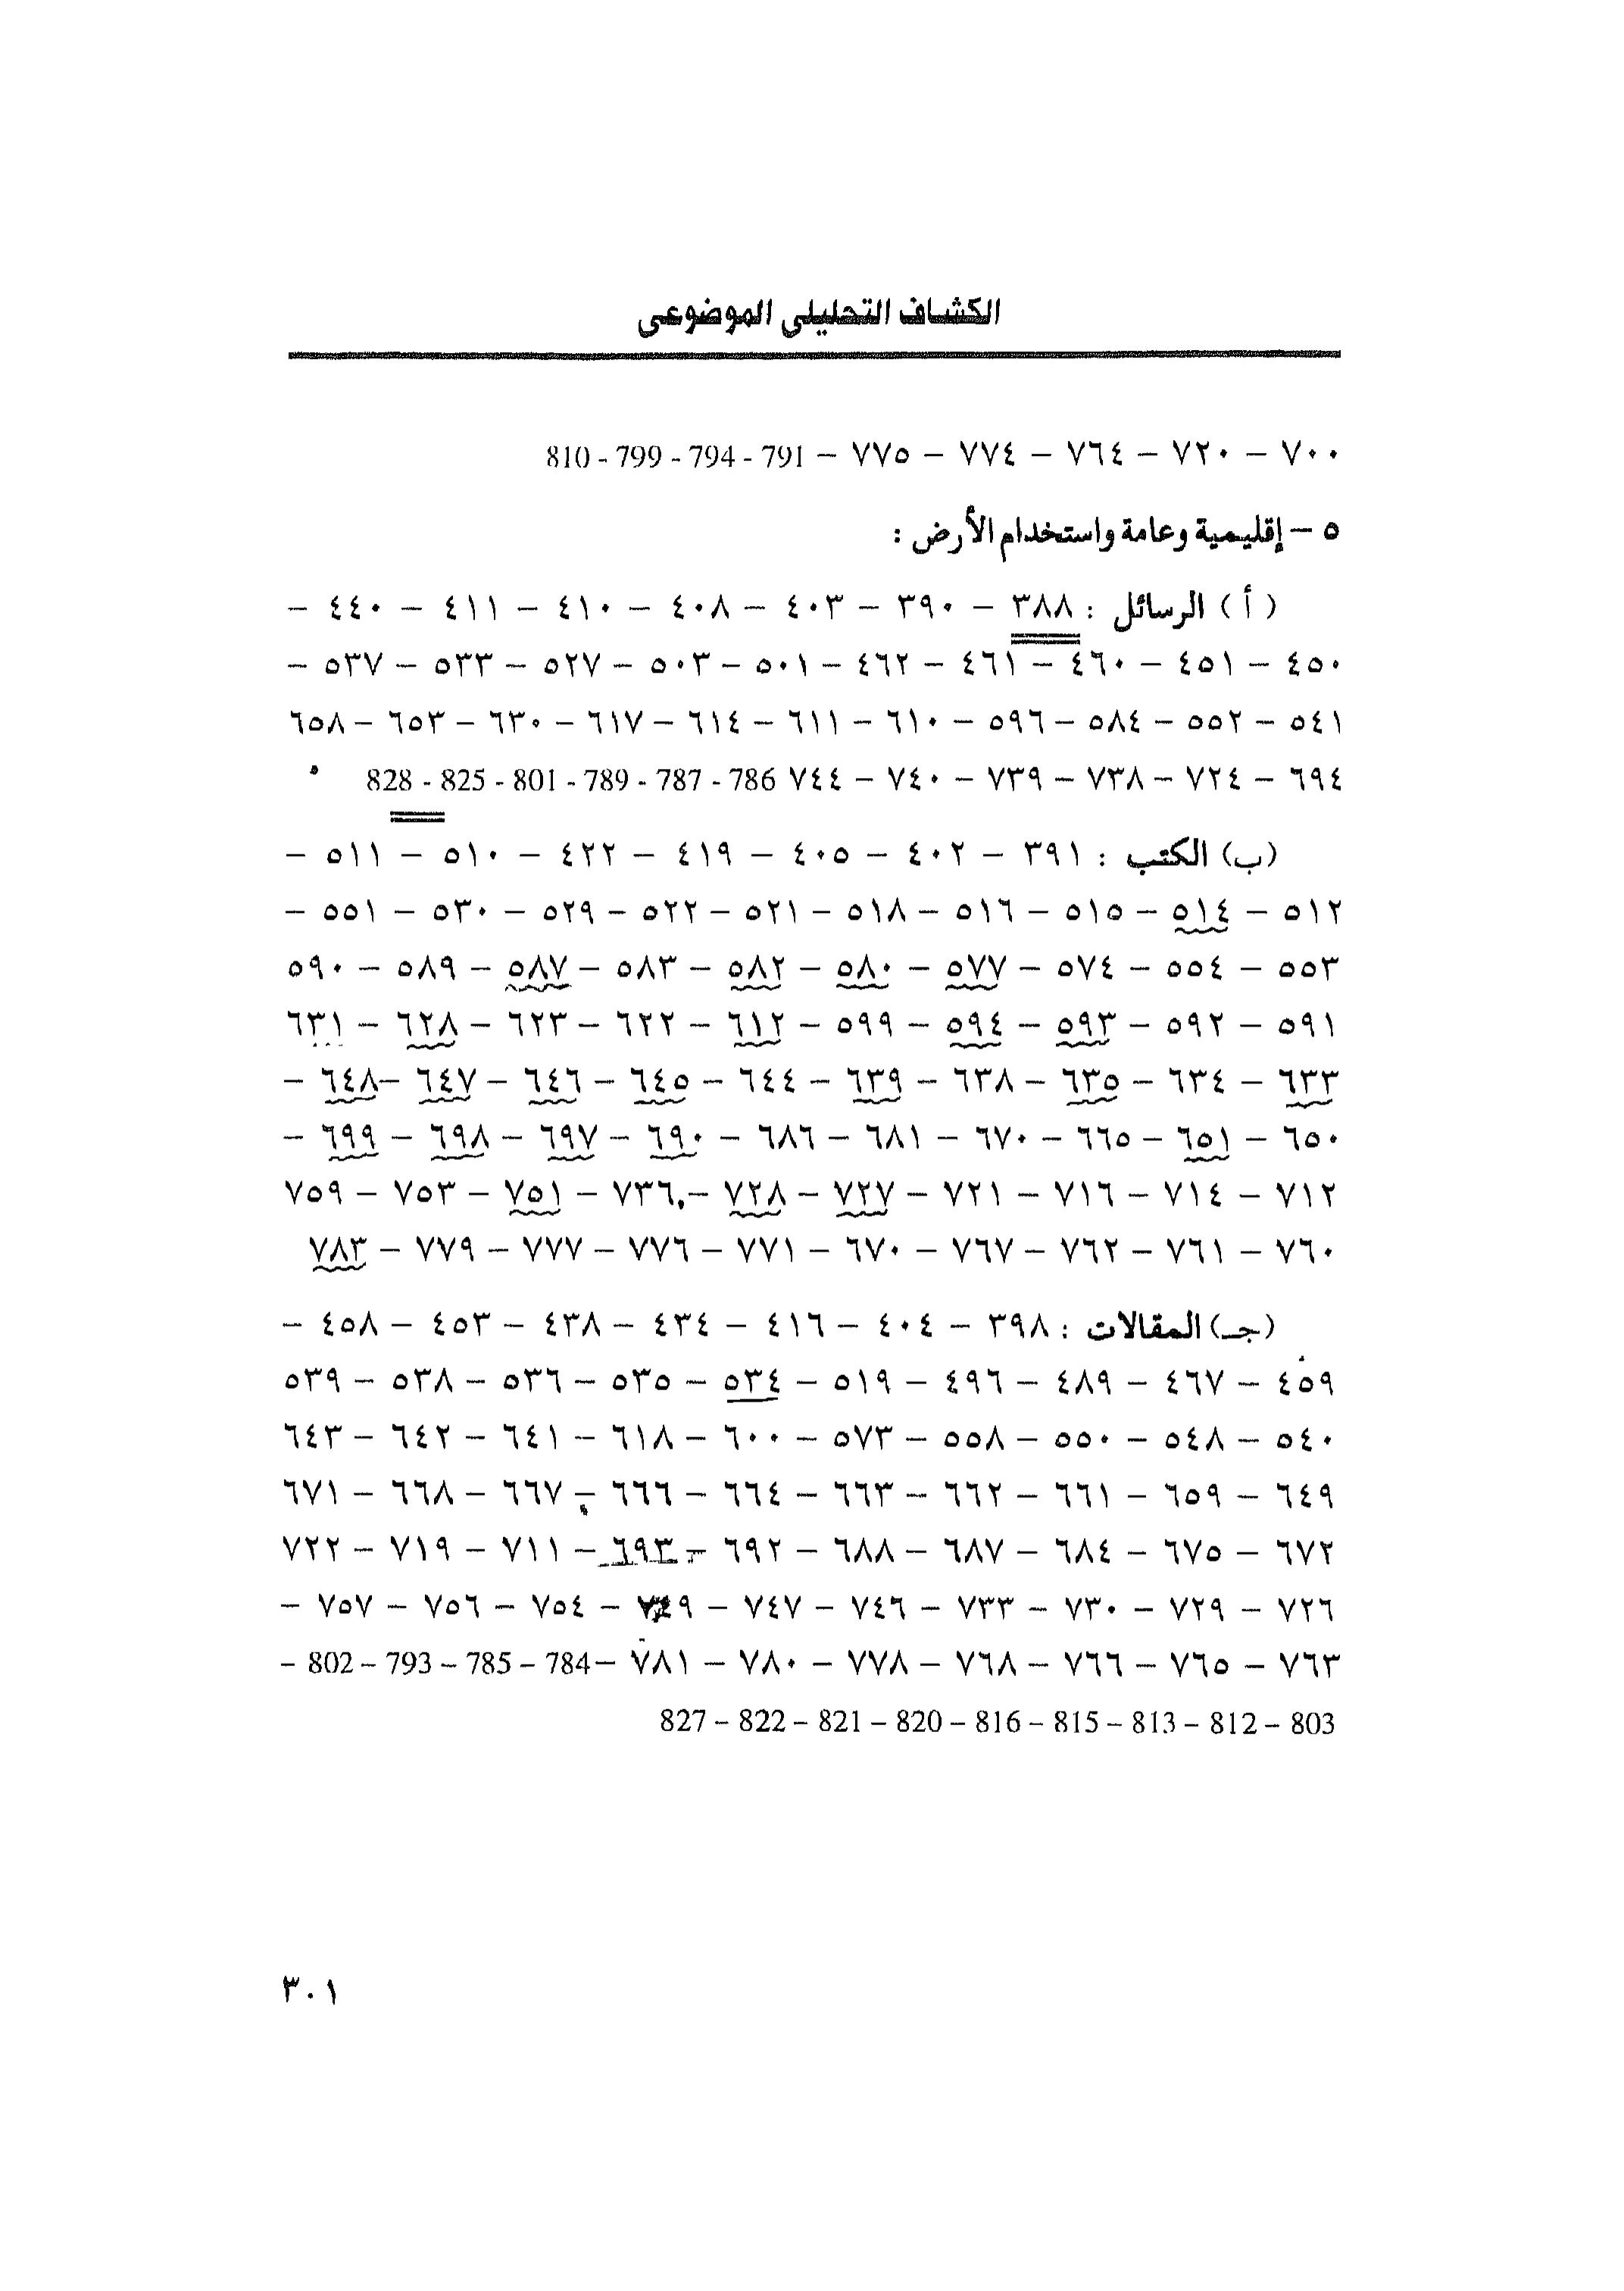 الكشاف التحليلى الموضوعى
٧٠٠ – ٧٢٠ – ٧٦٤ – ٧٧٤ – ٧٧٥ – 791 - 794 - 799 - 810
٥ – إقليمية وعامة واستخدام الأرض :
( أ ) الرسائل : ٣٨٨ – ٣٩٠ – ٤٠٣ – ٤٠٨ – ٤١٠ – ٤١١ – ٤٤٠ –
٤٥٠ – ٤٥١ – ٤٦٠ – ٤٦١ – ٤٦٢ – ٥٠١ – ٥٠٣ – ٥٢٧ – ٥٣٣ – ٥٣٧ –
٥٤١ – ٥٥٢ – ٥٨٤ – ٥٩٦ – ٦١٠ – ٦١١ – ٦١٤ – ٦١٧ – ٦٣٠ – ٦٥٣ – ٦٥٨
٦٩٤ – ٧٢٤ – ٧٣٨ – ٧٣٩ – ٧٤٠ – ٧٤٤ 786 - 787 - 789 - 801 - 825 - 828
(ب) الكتب : ٣٩١ – ٤٠٢ – ٤٠٥ – ٤١٩ – ٤٢٢ – ٥١٠ – ٥١١ –
٥١٢ – ٥١٤ – ٥١٥ – ٥١٦ – ٥١٨ – ٥٢١ – ٥٢٢ – ٥٢٩ – ٥٣٠ – ٥٥١ –
٥٥٣ – ٥٥٤ – ٥٧٤ – ٥٧٧ – ٥٨٠ – ٥٨٢ – ٥٨٣ – ٥٨٧ – ٥٨٩ – ٥٩٠
٥٩١ – ٥٩٢ – ٥٩٣ – ٥٩٤ – ٥٩٩ – ٦١٢ – ٦٢٢ – ٦٢٣ – ٦٢٨ – ٦٣١
٦٣٣ – ٦٣٤ – ٦٣٥ – ٦٣٨ – ٦٣٩ – ٦٤٤ – ٦٤٥ – ٦٤٦ – ٦٤٧ –٦٤٨ –
٦٥٠ – ٦٥١ – ٦٦٥ – ٦٧٠ – ٦٨١ – ٦٨٦ – ٦٩٠ – ٦٩٧ – ٦٩٨ – ٦٩٩ –
٧١٢ – ٧١٤ – ٧١٦ – ٧٢١ – ٧٢٧ – ٧٢٨ –٧٣٦ – ٧٥١ – ٧٥٣ – ٧٥٩
٧٦٠ – ٧٦١ – ٧٦٢ – ٧٦٧ – ٦٧٠ – ٧٧١ – ٧٧٦ – ٧٧٧ – ٧٧٩ – ٧٨٣
(جـ) المقالات : ٣٩٨ – ٤٠٤ – ٤١٦ – ٤٣٤ – ٤٣٨ – ٤٥٣ – ٤٥٨ –
٤٥٩ – ٤٦٧ – ٤٨٩ – ٤٩٦ – ٥١٩ – ٥٣٤ – ٥٣٥ – ٥٣٦ – ٥٣٨ – ٥٣٩
٥٤٠ – ٥٤٨ – ٥٥٠ – ٥٥٨ – ٥٧٣ – ٦٠٠ – ٦١٨ – ٦٤١ – ٦٤٢ – ٦٤٣
٦٤٩ – ٦٥٩ – ٦٦١ – ٦٦٢ – ٦٦٣ – ٦٦٤ – ٦٦٦ – ٦٦٧ – ٦٦٨ – ٦٧١
٦٧٢ – ٦٧٥ – ٦٨٤ – ٦٨٧ – ٦٨٨ – ٦٩٢ – ٦٩٣ – ٧١١ – ٧١٩ – ٧٢٢
٧٢٦ – ٧٢٩ – ٧٣٠ – ٧٣٣ – ٧٤٦ – ٧٤٧ – ٧٤٩ – ٧٥٤ – ٧٥٦ – ٧٥٧ –
٧٦٣ – ٧٦٥ – ٧٦٦ – ٧٦٨ – ٧٧٨ – ٧٨٠ – ٧٨١ –784 – 785 – 793 – 802 –
803 – 812 – 813 – 815 – 816 – 820 – 821 – 822 – 827
٣٠١